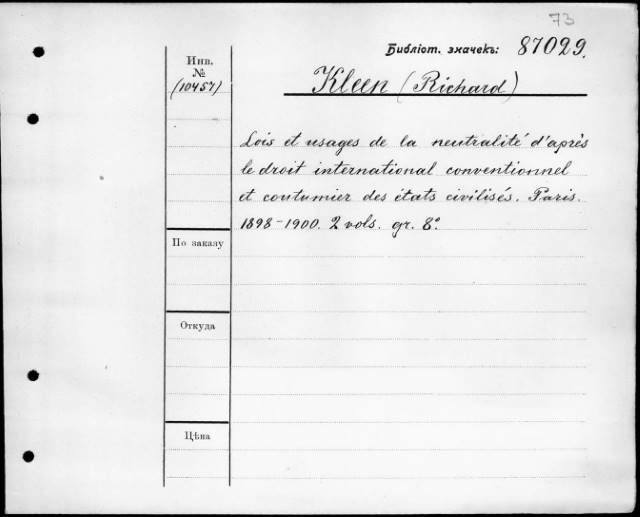 73
Библіот. значекъ: 87029.
Инв.
№
(10457)
Kleen (Richard)
Lois et usages de la neutralité d'après
le droit international conventionnel
et coutumier des états civilisés. Paris.
1898-1900. 2 vols. gr. 8°.
По заказу
Откуда
Цѣна